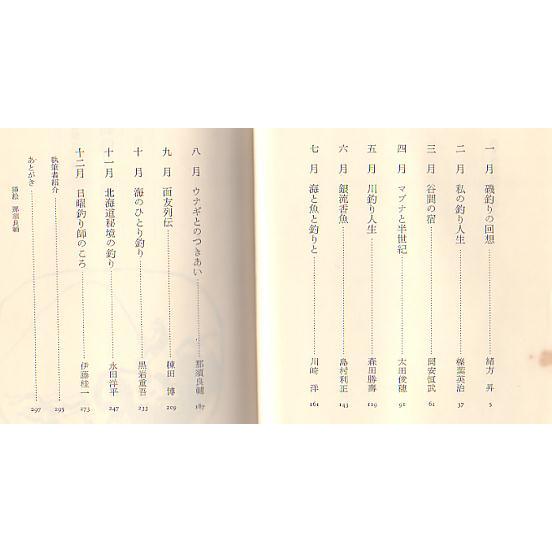 一月 磯釣りの回想 緒方昇 5
二月 私の釣り人生 榛葉英治 37
三月 谷間の宿 岡安恒武 61
四月 マブナと半世紀 太田俊穂 91
五月 川釣り人生 森田勝壽 119
六月 銀流香魚 島村利正 143
七月 海と魚と釣りと 川崎洋 161
八月 ウナギとのつきあい 那須良輔 187
九月 面友列伝 棟田博 209
十月 海のひとり釣り 黒岩重吾 233
十一月 北海道秘境の釣り 永田洋平 247
十二月 日曜釣り師のころ 伊藤桂一 273
執筆者紹介 295
あとがき 297
挿絵 那須良輔